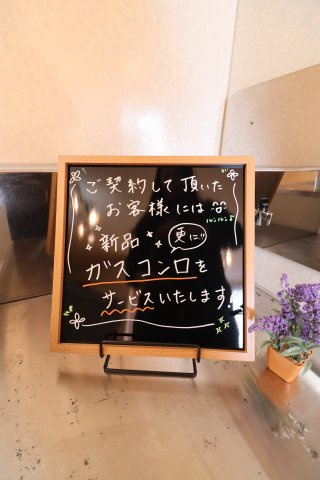 ご契約して頂いた
お客様には
ルンルン♪
更に!!
新品
ガスコンロを
サービスいたします。